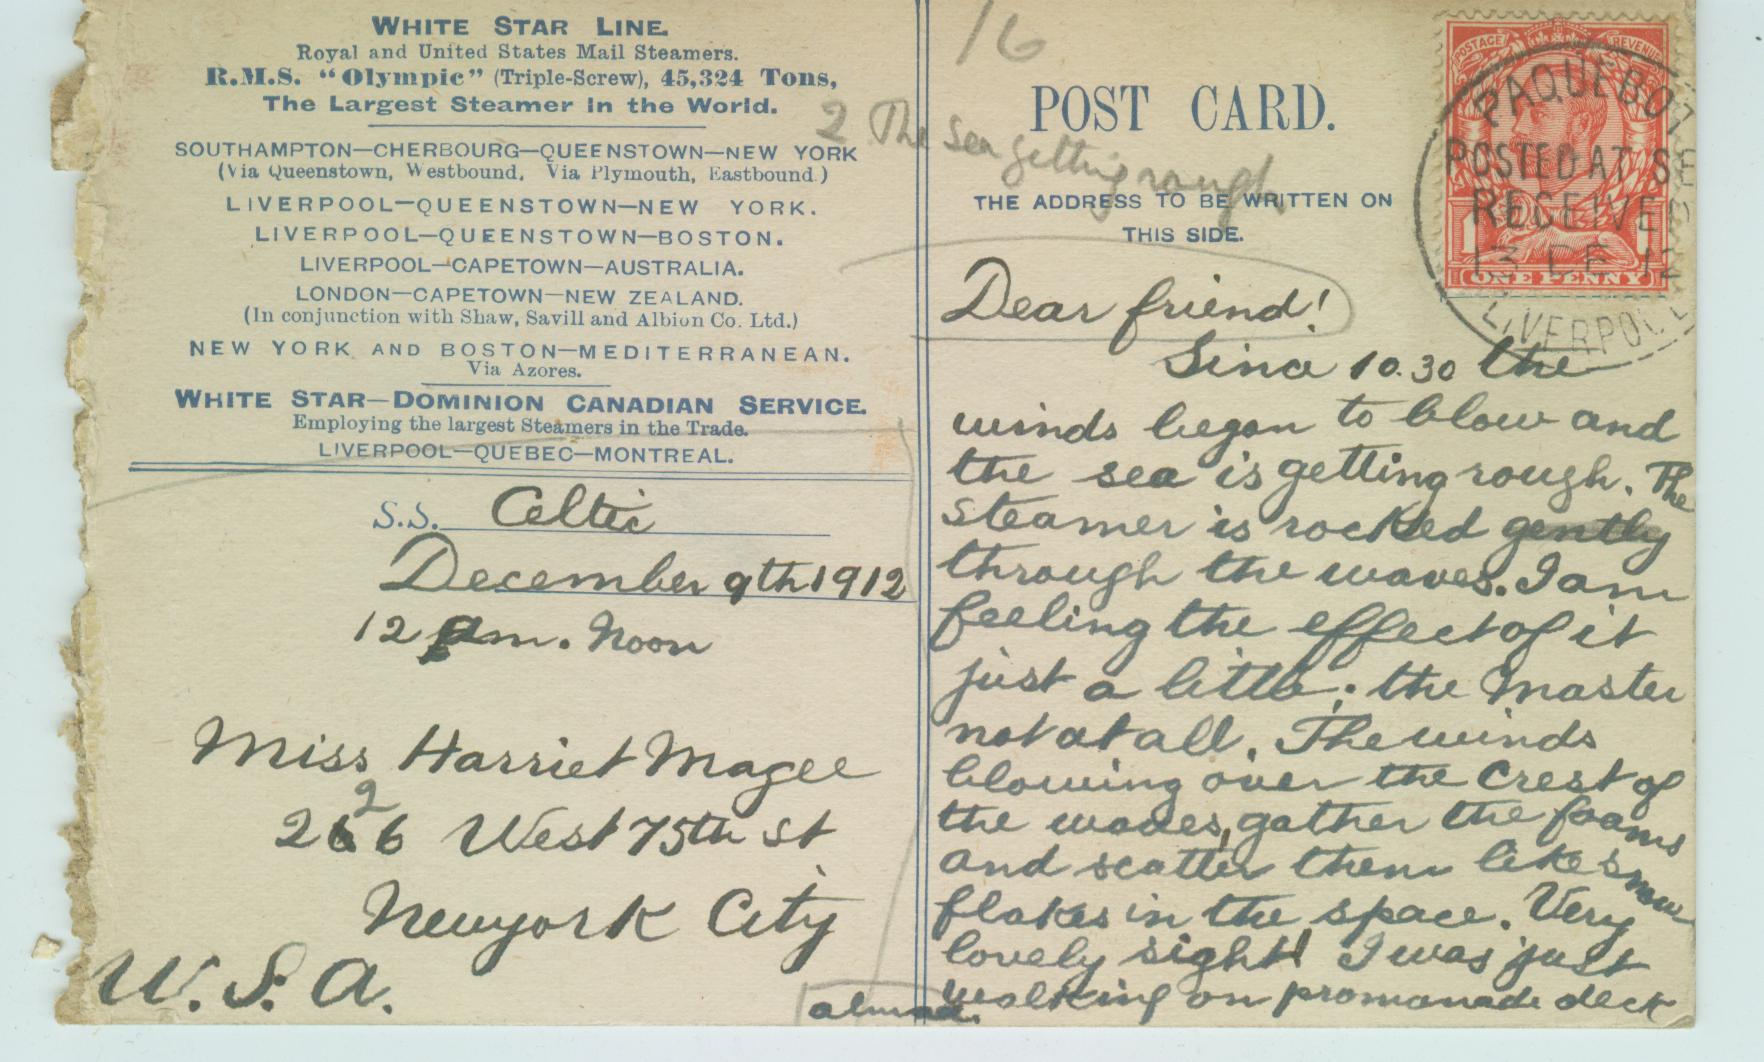 WHITE STAR LINE.
Royal and United States Mail Steamers.
R.M.S. "Olympic" (Triple-Screw), 45,324 Tons,
The Largest Steamer in the World.
SOUTHAMPTON—CHERBOURG—QUEENSTOWN—NEW YORK
(Via Queenstown, Westbound, Via Plymouth, Eastbound.)
LIVERPOOL—QUEENSTOWN—NEW YORK.
LIVERPOOL—QUEENSTOWN—BOSTON.
LIVERPOOL—CAPETOWN—AUSTRALIA.
LONDON—CAPETOWN—NEW ZEALAND.
(In conjunction with Shaw, Savill and Albion Co. Ltd.)
NEW YORK AND BOSTON—MEDITERRANEAN.
Via Azores.
WHITE STAR—DOMINION CANADIAN SERVICE.
Employing the largest Steamers in the Trade.
LIVERPOOL—QUEBEC—MONTREAL.
S.S. Celtic
December 9th 1912
12 am. Noon
Miss Harriet Magee
2
266 West 75th st
Newyork City
U. S. A.
16
2 The sea getting rough
POST CARD.
THE ADDRESS TO BE WRITTEN ON
THIS SIDE.
POSTAGE REVENUE
ONE PENNY
PAQUEBOT
POSTED AT SEA
RECEIVED
13 DE 12
LIVERPOOL
Dear friend!
Since 10.30 the
winds began to blow and
the sea is getting rough. The
steamer is rocked gently
through the waves. I am
feeling the effect of it
just a little; the Master
not at all. The winds
blowing over the crest of
the waves, gather the foams
and scatter them like snow
flakes in the space. Very
lovely sight! I was just
walking on promanade deck